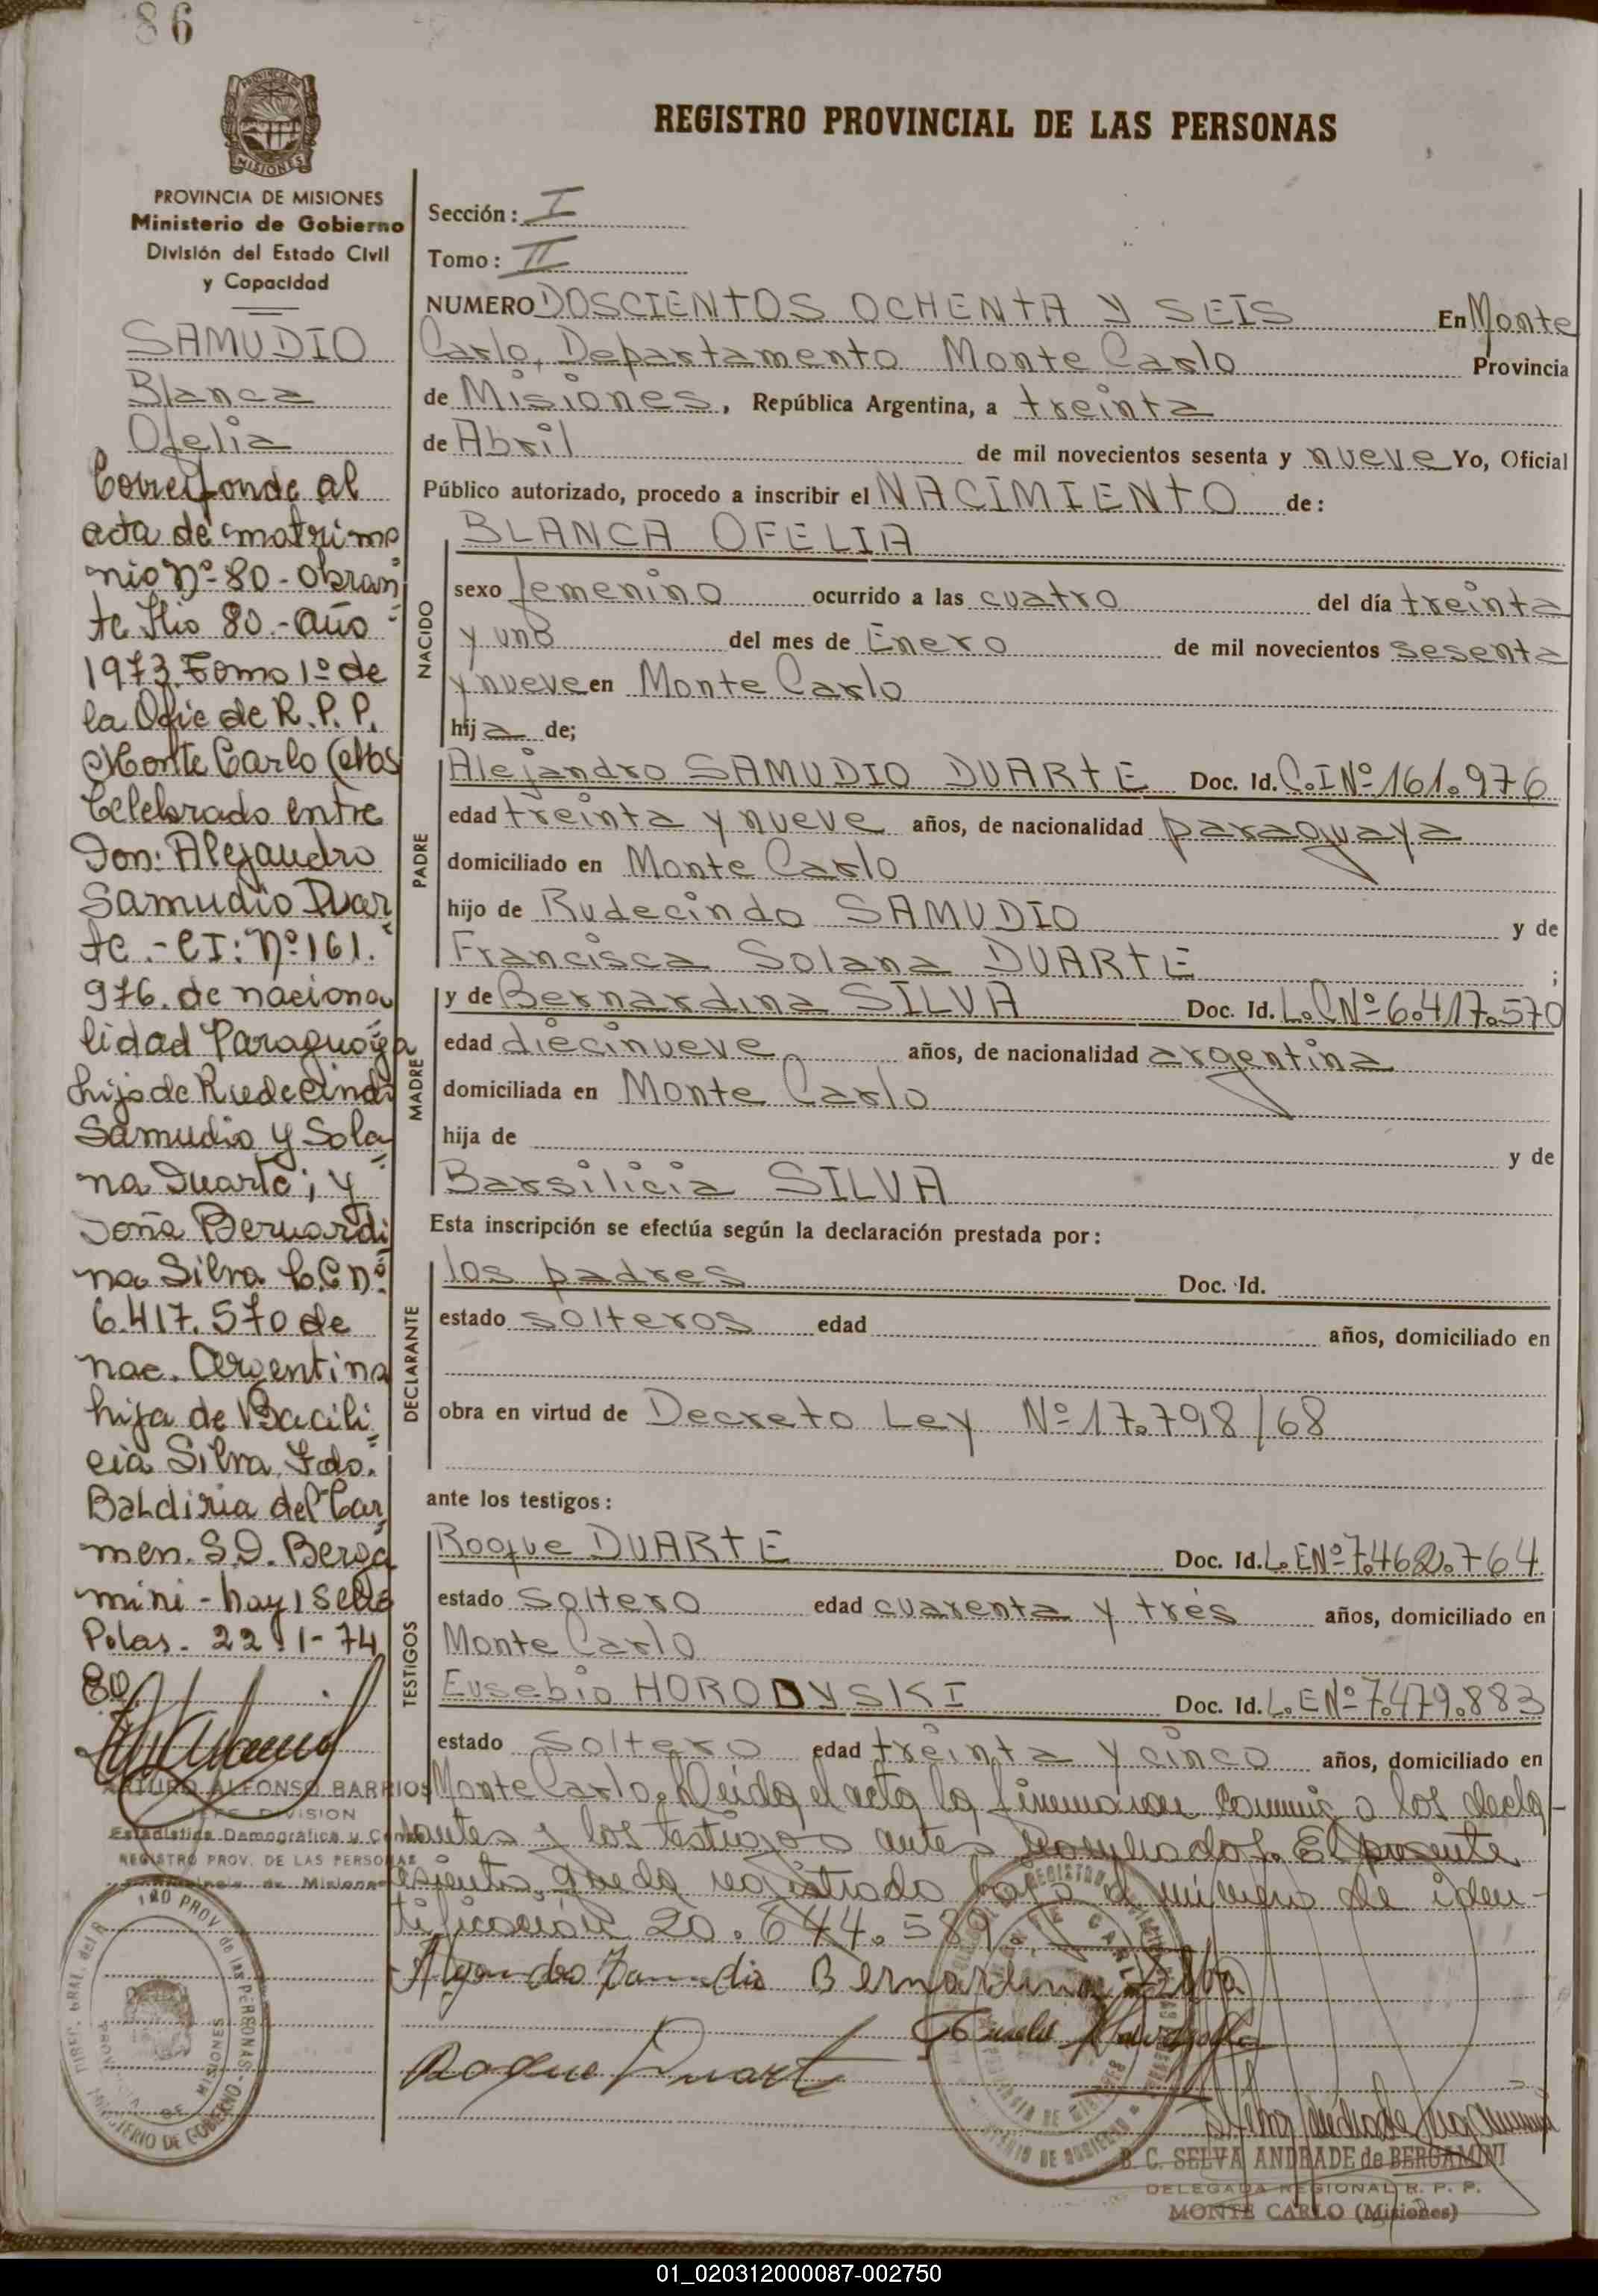 86
PROVINCIA DE MISIONES
Ministerio de Gobierno
División del Estado Civil
y Capacidad
SAMUDIO
Blanca
Ofelia
Corresponde al
acta de matrimo
nio Nº 80 - obran
te flio 80.- año
1973 Tomo 1º de
la Ofic de R. P. P.
Monte Carlo (Mnes
Celebrado entre
Don: Alejandro
Samudio Duar
te. - CI: Nº 161.
976. de naciona
lidad Paraguaya
hijo de Rudecindo
Samudio y Sola
na Duarte; y
Doña Bernardi
na Silva L.C Nº
6.417.570 de
nac. Argentina
hija de Bacili
cia Silva. Fdo.
del Car
men. S.D. Berga
mini - hay 1 sello
Pdas. 22-1-74
ARTURO ALFONSO BARRIOS
JEFE DIVISION
Estadística Demográfica y
REGISTRO PROV. DE LAS PERSONAS
Provincia de Misiones
REGISTRO PROVINCIAL DE LAS PERSONAS
Sección: I
Tomo: II
NUMERO DOSCIENTOS OCHENTA Y SEIS En Monte
Carlo, Departamento Monte Carlo Provincia
de Misiones, República Argentina, a treinta
de Abril de mil novecientos sesenta y nueve Yo, Oficial
Público autorizado, procedo a inscribir el NACIMIENTO de:
BLANCA OFELIA
NACIDO
sexo femenino ocurrido a las cuatro del día treinta
y uno del mes de Enero de mil novecientos sesenta
y nueve en Monte Carlo
hija de;
PADRE
Alejandro SAMUDIO DUARTE Doc. Id. C.I Nº 161.976
edad treinta y nueve años, de nacionalidad paraguaya
domiciliado en Monte Carlo
hijo de Rudecindo SAMUDIO y de
Francisca Solana DUARTE ;
MADRE
y de Bernardina SILVA Doc. Id. L.C Nº 6.417.570
edad diecinueve años, de nacionalidad argentina
domiciliada en Monte Carlo
hija de y de
Barsilicia SILVA
Esta inscripción se efectúa según la declaración prestada por:
DECLARANTE
los padres Doc. Id.
estado solteros edad años, domiciliado en
obra en virtud de Decreto Ley Nº 17.798/68
ante los testigos:
TESTIGOS
Roque DUARTE Doc. Id. L.E Nº 7.462.764
estado soltero edad cuarenta y tres años, domiciliado en
Monte Carlo
Eusebio HORODYSKI Doc. Id. L.E Nº 7.479.883
estado soltero edad treinta y cinco años, domiciliado en
Monte Carlo. Leída el acta la firmaron conmigo los decla-
rantes y los testigos antes nombrados. El presente
asiento queda registrado bajo el número de iden-
tificación 20.644.589.
Alejandro Samudio Bernardina Silva
Roque Duarte
B. C. SELVA ANDRADE de BERGAMINI
DELEGADA REGIONAL R. P. P.
MONTE CARLO (Misiones)
01_020312000087-002750